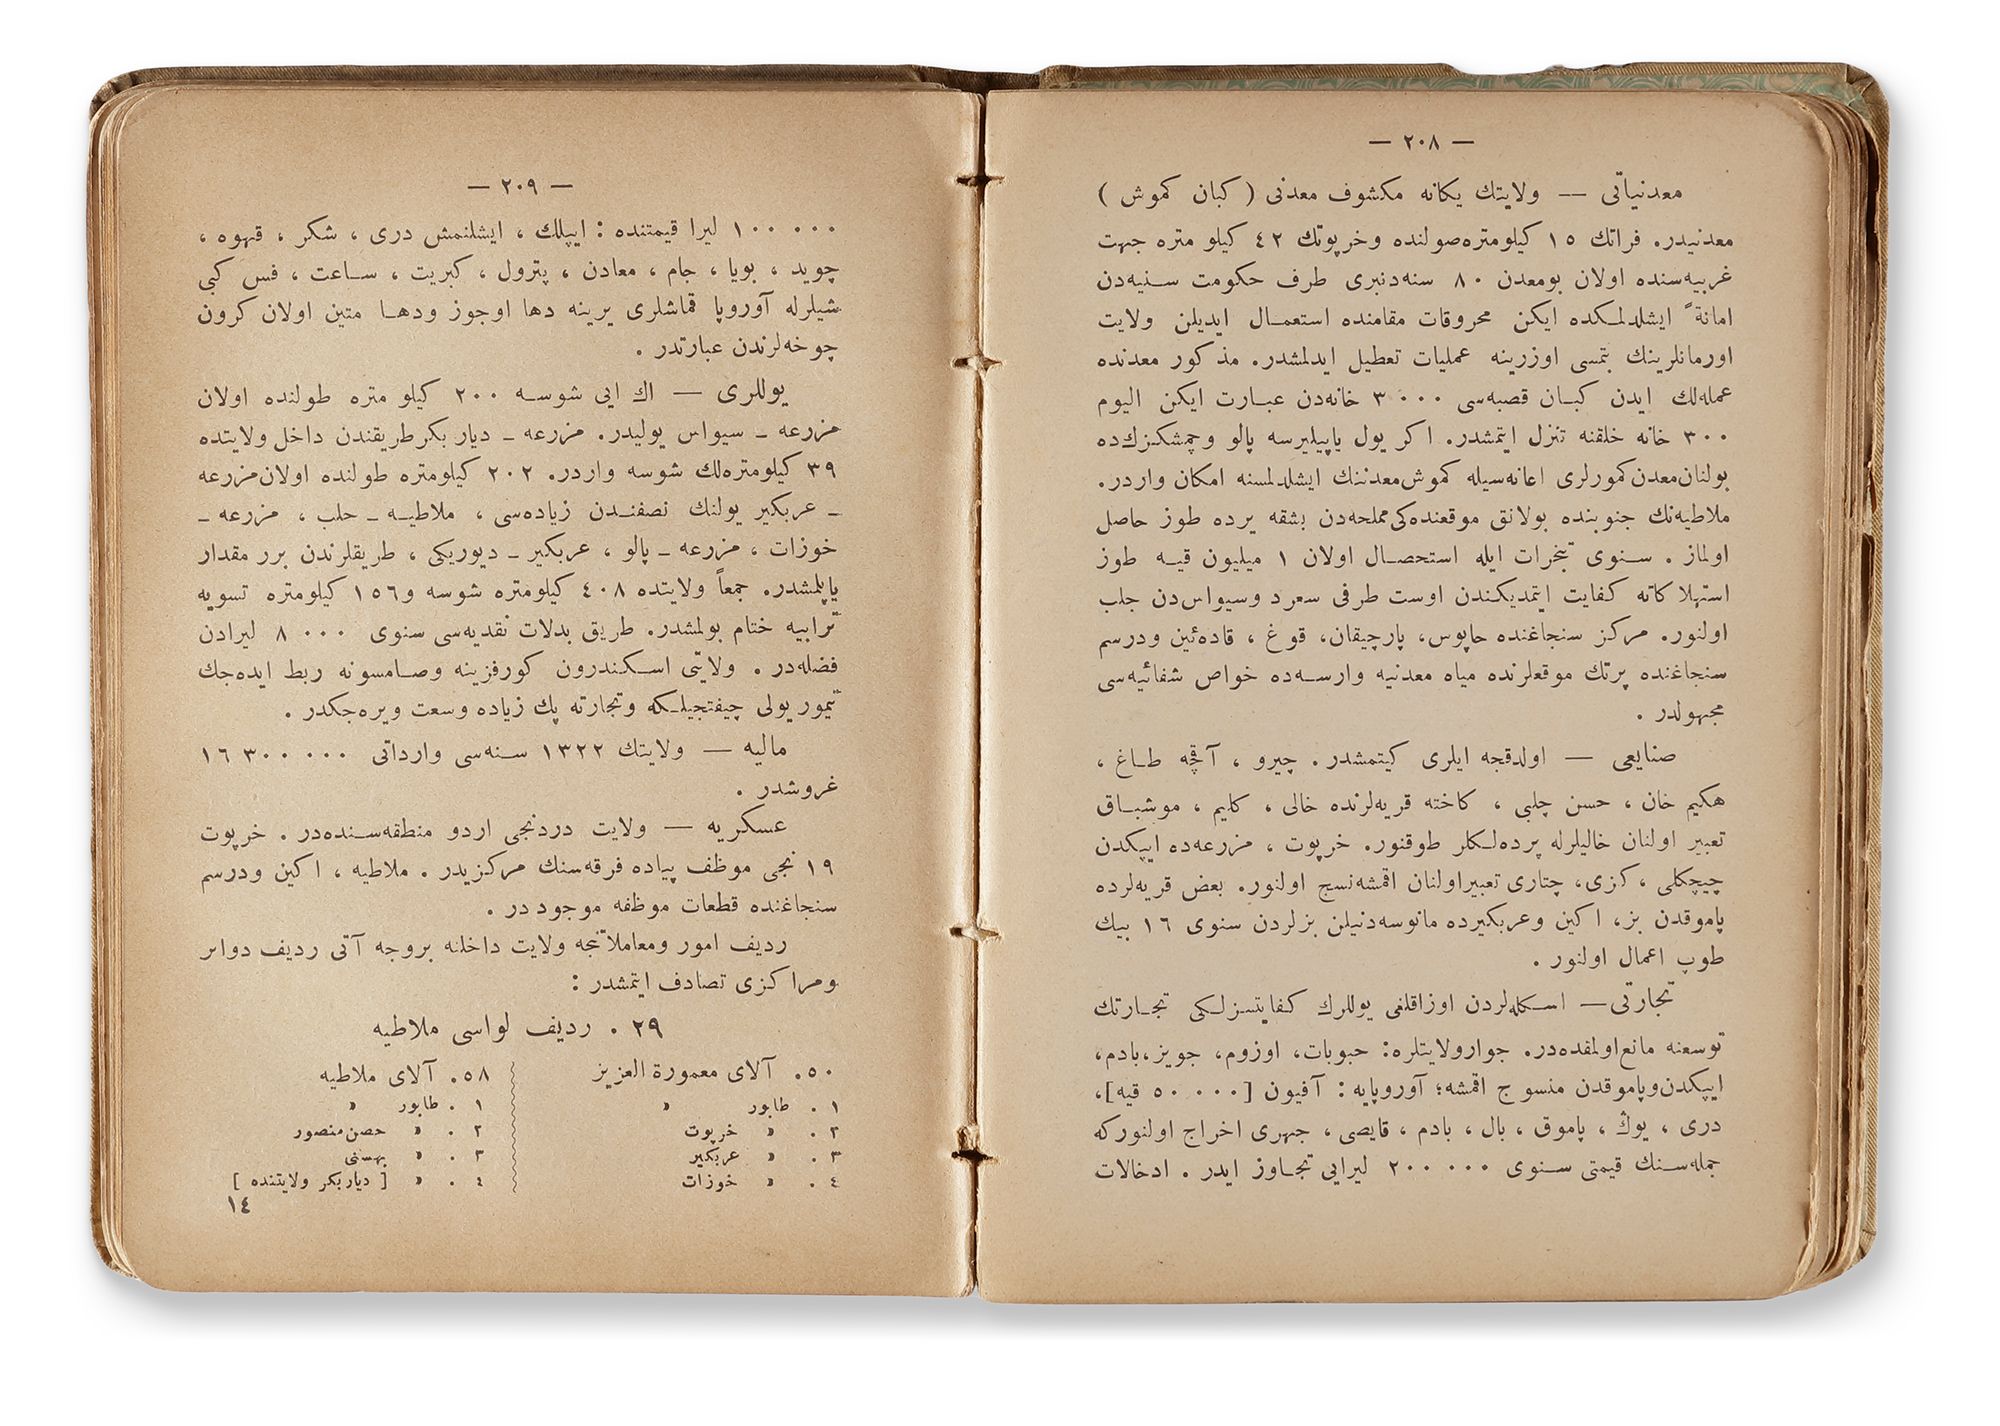 — ٢٠٨ —
معدنیاتی — ولایتك یکانه مکشوف معدنی ( کبان کموش )
معدنیدر. فراتك ١٥ کیلومتره صولنده وخرپوتك ٤٢ کیلو متره جهت
غربیه‌سنده اولان بومعدن ٨٠ سنه‌دنبری طرف حکومت سنیه‌دن
امانةً ایشلدلمکده ایکن محروقات مقامنده استعمال ایدیلن ولایت
اورمانلرینك بتمسی اوزرینه عملیات تعطیل ایدلمشدر. مذکور معدنده
عمله‌لك ایدن کبان قصبه‌سی ٣٠٠٠ خانه‌دن عبارت ایکن الیوم
٣٠٠ خانه خلقنه تنزل ایتمشدر. اکر یول یاپیلیرسه پالو وچمشکزك‌ده
بولنان معدن کمورلری اعانه‌سیله کموش معدننك ایشلدلمسنه امکان واردر.
ملاطیه‌نك جنوبنده بولانق موقعنده‌کی مملحه‌دن بشقه یرده طوز حاصل
اولماز . سنوی تبخرات ایله استحصال اولان ١ میلیون قیه طوز
استهلاکاته کفایت ایتمدیکندن اوست طرفی سعرد وسیواس‌دن جلب
اولنور. مرکز سنجاغنده حاپوس، پارچیقان، قوغ ، قاده‌ئین ودرسم
سنجاغنده پرتك موقعلرنده میاه معدنیه وارسه‌ده خواص شفائیه‌سی
مجهولدر .
صنایعی — اولدقجه ایلری کیتمشدر. چیرو ، آقچه طاغ ،
هکیم خان ، حسن چلبی ، کاخته قریه‌لرنده خالی ، کلیم ، موشباق
تعبیر اولنان خالیلرله پرده‌لکلر طوقنور. خرپوت ، مزرعه‌ده ایپکدن
چیچکلی ، کزی، چتاری تعبیراولنان اقمشه نسج اولنور. بعض قریه‌لرده
پاموقدن بز، اکین وعربکیرده مانوسه دنیلن بزلردن سنوی ١٦ بیك
طوپ اعمال اولنور .
تجارتی — اسکله‌لردن اوزاقلغی یوللرك کفایتسزلکی تجارتك
توسعنه مانع اولمقده‌در. جوار ولایتلره: حبوبات، اوزوم، جویز، بادم،
ایپکدن وپاموقدن منسوج اقمشه؛ آوروپایه : آفیون [٥٠٠٠٠ قیه]،
دری ، یوڭ ، پاموق ، بال ، بادم ، قایصی ، جهری اخراج اولنورکه
جمله‌سنك قیمتی سنوی ٢٠٠٠٠٠ لیرایی تجاوز ایدر . ادخالات
— ٢٠٩ —
١٠٠٠٠٠ لیرا قیمتنده : ایپلك ، ایشلنمش دری ، شکر ، قهوه ،
چوید ، بویا ، جام ، معادن ، پترول ، کبریت ، ساعت ، فس کبی
شیلرله آوروپا قماشلری یرینه دها اوجوز ودها متین اولان کرون
چوخه‌لرندن عبارتدر .
یوللری — اك ایی شوسه ٢٠٠ کیلو متره طولنده اولان
مزرعه ـ سیواس یولیدر. مزرعه ـ دیاربکر طریقندن داخل ولایتده
٣٩ کیلومتره‌لك شوسه واردر. ٢٠٢ کیلومتره طولنده اولان مزرعه
ـ عربکیر یولنك نصفندن زیاده‌سی ، ملاطیه ـ حلب ، مزرعه ـ
خوزات ، مزرعه ـ پالو ، عربکیر ـ دیوریکی ، طریقلرندن برر مقدار
یاپلمشدر. جمعاً ولایتده ٤٠٨ کیلومتره شوسه و١٥٦ کیلومتره تسویه
ترابیه ختام بولمشدر. طریق بدلات نقدیه‌سی سنوی ٨٠٠٠ لیرادن
فضله‌در . ولایتی اسکندرون کورفزینه وصامسونه ربط ایده‌جك
تیمور یولی چیفتجیلکه وتجارته پك زیاده وسعت ویره‌جکدر .
مالیه — ولایتك ١٣٢٢ سنه‌سی وارداتی ١٦٣٠٠٠٠٠
غروشدر .
عسکریه — ولایت دردنجی اردو منطقه‌سنده‌در . خرپوت
١٩ نجی موظف پیاده فرقه‌سنك مرکزیدر . ملاطیه ، اکین ودرسم
سنجاغنده قطعات موظفه موجوددر .
ردیف امور ومعاملاتنجه ولایت داخلنه بروجه آتی ردیف دوائر
ومراکزی تصادف ایتمشدر :
٢٩ . ردیف لواسی ملاطیه
٥٠. آلای معمورة العزیز
١ . طابور »
٢ . » خرپوت
٣ . » عربکیر
٤ . » خوزات
٥٨. آلای ملاطیه
١ . طابور »
٢ . » حصن منصور
٣ . » بهسنی
٤ . » [ دیاربکر ولایتنده ]
١٤